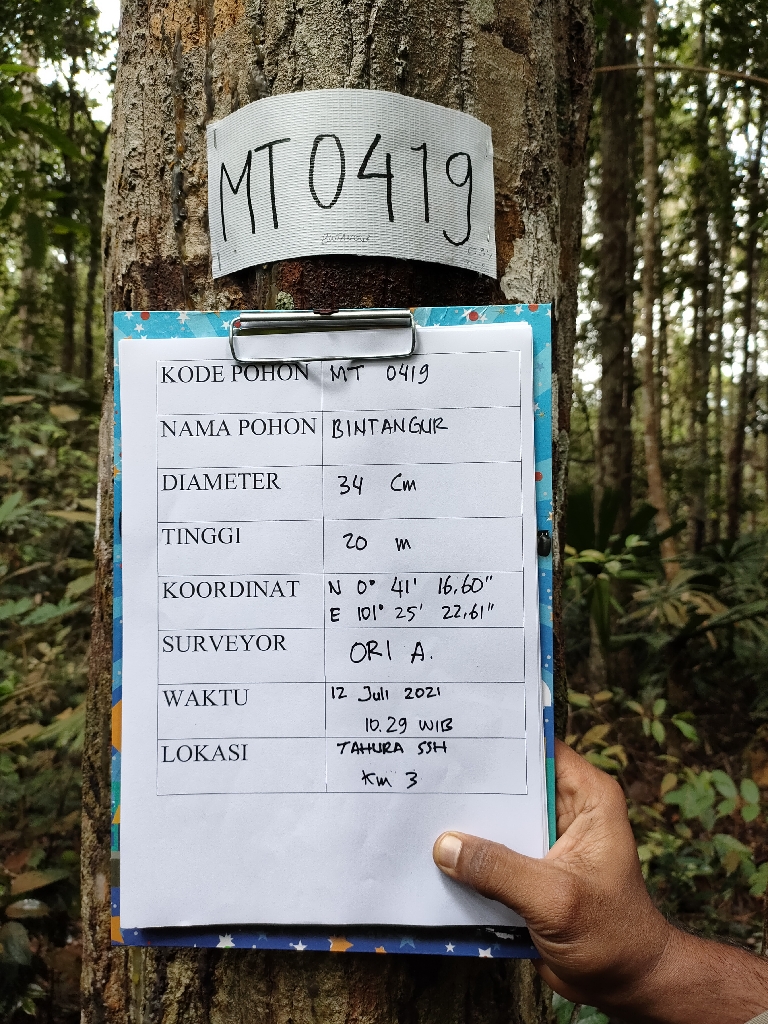 MT 0419
KODE POHON MT 0419
NAMA POHON BINTANGUR
DIAMETER 34 Cm
TINGGI 20 m
KOORDINAT N 0° 41' 16,60"
E 101° 25' 22,61"
SURVEYOR ORI A.
WAKTU 12 Juli 2021
10.29 WIB
LOKASI TAHURA SSH
Km 3